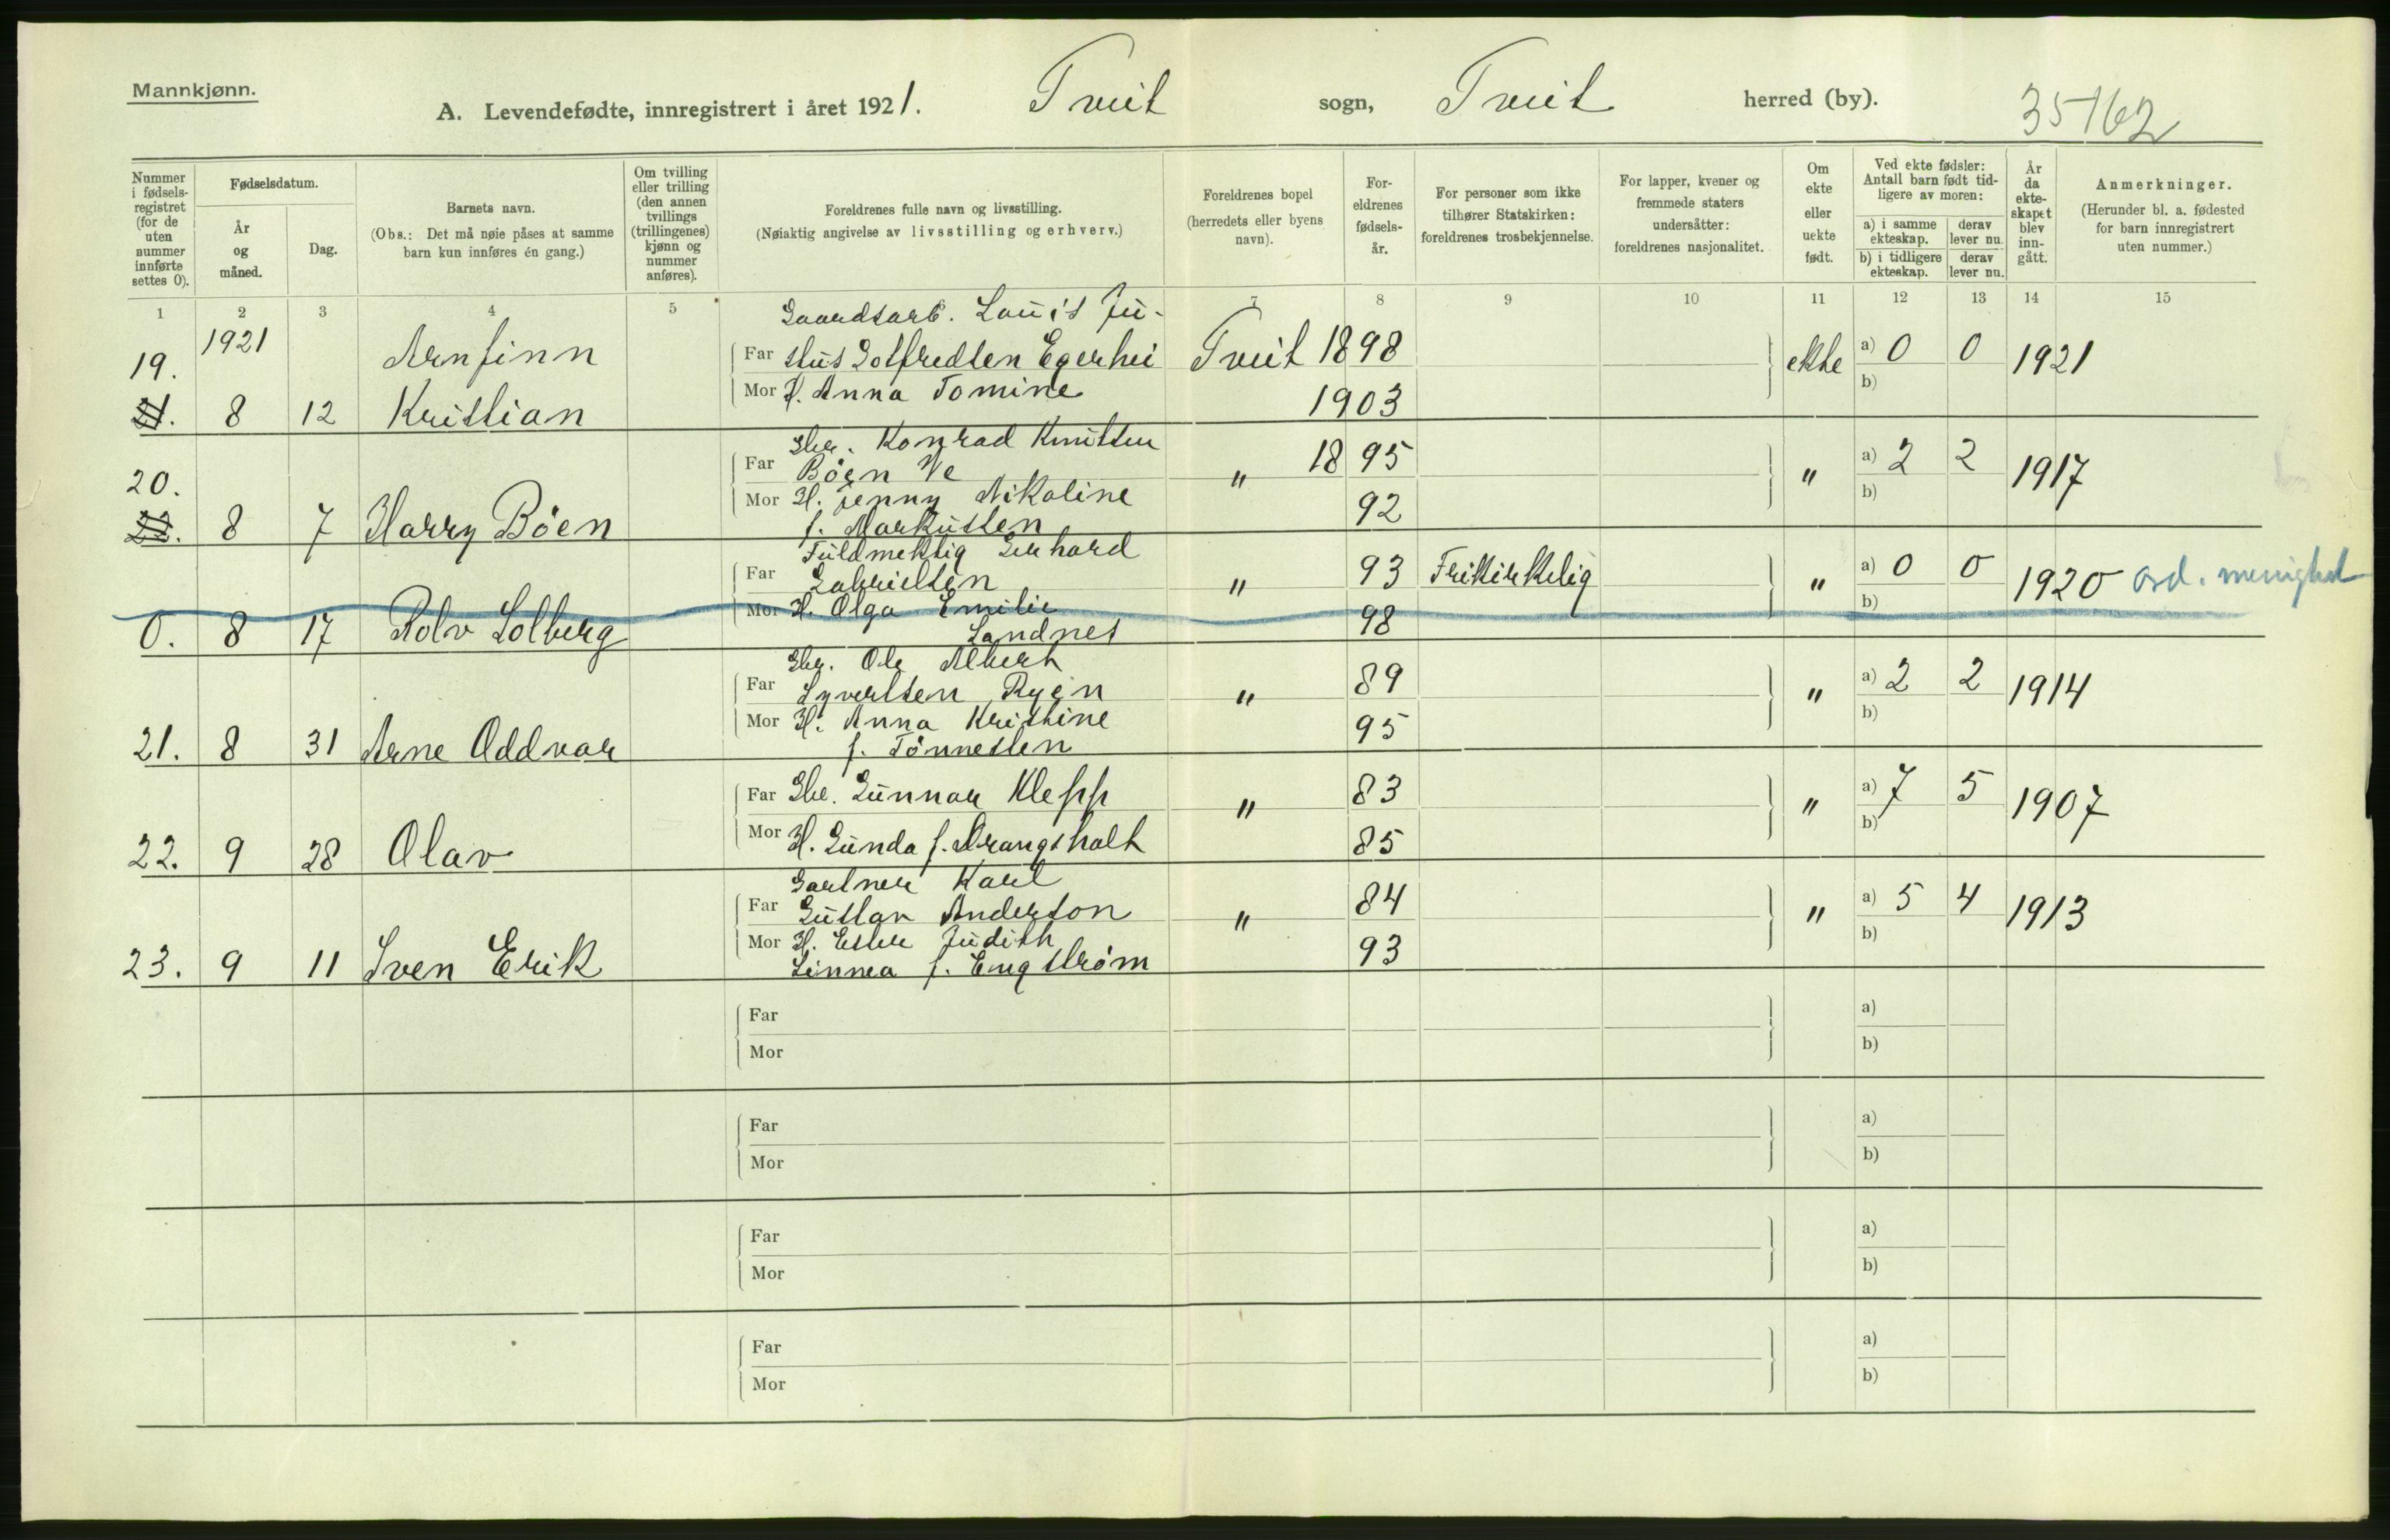 Mannkjønn.
A. Levendefødte, innregistrert i året 1921. Tveit sogn, Tveit herred (by).
35162
Nummer i fødsels-registret (for de uten nummer innførte settes 0).
Fødselsdatum.
År og måned.
Dag.
Barnets navn.
(Obs.: Det må nøie påses at samme barn kun innføres én gang.)
Om tvilling eller trilling (den annen tvillings (trillingenes) kjønn og nummer anføres).
Foreldrenes fulle navn og livsstilling.
(Nøiaktig angivelse av livsstilling og erhverv.)
Foreldrenes bopel (herredets eller byens navn).
For-eldrenes fødsels-år.
For personer som ikke tilhører Statskirken: foreldrenes trosbekjennelse.
For lapper, kvener og fremmede staters undersåtter: foreldrenes nasjonalitet.
Om ekte eller uekte født.
Ved ekte fødsler: Antall barn født tid-ligere av moren:
a) i samme ekteskap.
derav lever nu.
b) i tidligere ekteskap.
derav lever nu.
År da ekte-skapet blev inn-gått.
Anmerkninger.
(Herunder bl. a. fødested for barn innregistrert uten nummer.)
1 2 3 4 5 6 7 8 9 10 11 12 13 14 15
Gaardsarb. Louis Ju-
19. 1921 Arnfinn Far stus Gotfredsen Egerhei Tveit 1898 ekte a) 0 0 1921
21. 8 12 Kristian Mor H. Anna Tomine 1903 b)
Gbr. Konrad Knutsen
20. Far Bøen 1895 " " a) 2 2 1917
22. 8 7 Harry Bøen Mor H. Jenny Nikoline 92 b)
f. Markussen
Fuldmektig Gerhard
Far Gabrielsen " 93 Frikirkelig " a) 0 0 1920 osv. menighet
0. 8 17 Rolv Solberg Mor H. Olga Emilie 98 b)
Sandnes
Gbr. Ole Albert
Far Syvertsen Ryen " 89 " a) 2 2 1914
21. 8 31 Arne Oddvar Mor H. Anna Kristine 95 b)
f. Tønnessen
Far Gbr. Gunnar Klepp " 83 " a) 7 5 1907
22. 9 28 Olav Mor H. Gunda f. Drangsholt 85 b)
Gartner Karl
Far Gustav Anderson " 84 " a) 5 4 1913
23. 9 11 Sven Erik Mor H. Ester Judith 93 b)
Linnea f. Engstrøm
Far a)
Mor b)
Far a)
Mor b)
Far a)
Mor b)
Far a)
Mor b)